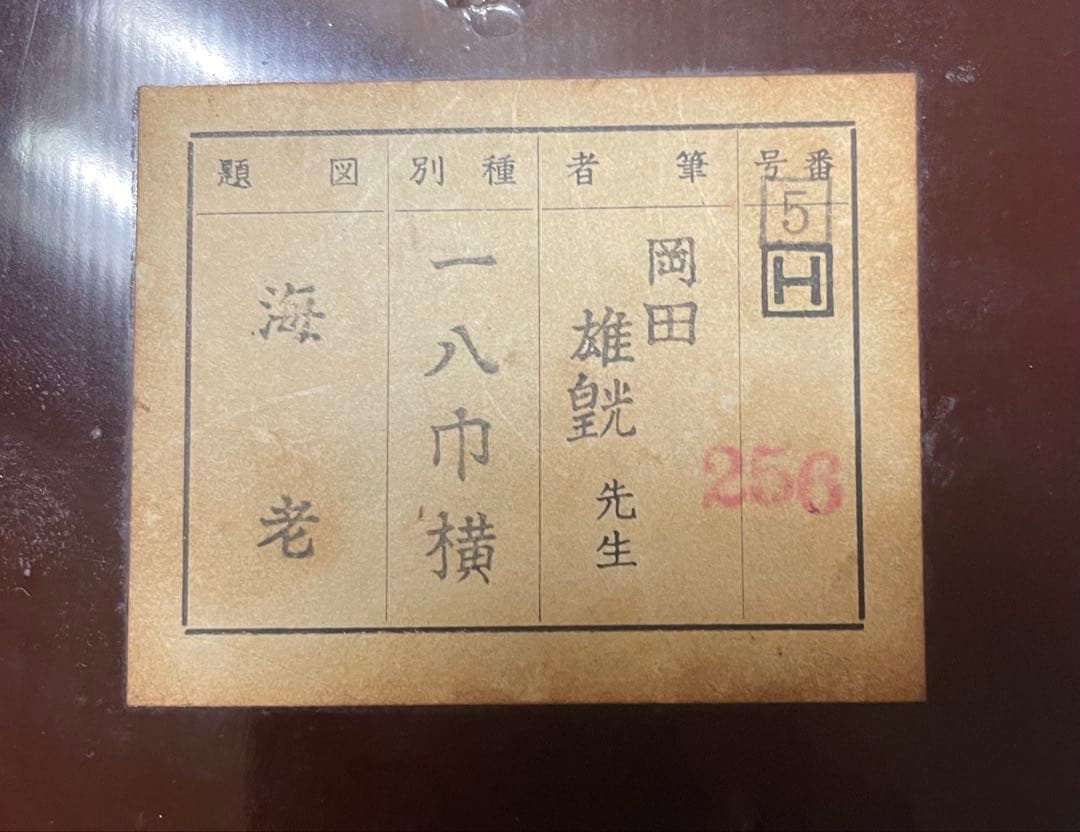 番号
5
H
256
筆者
岡田
雄皝
先生
種別
一八巾横
図題
海老